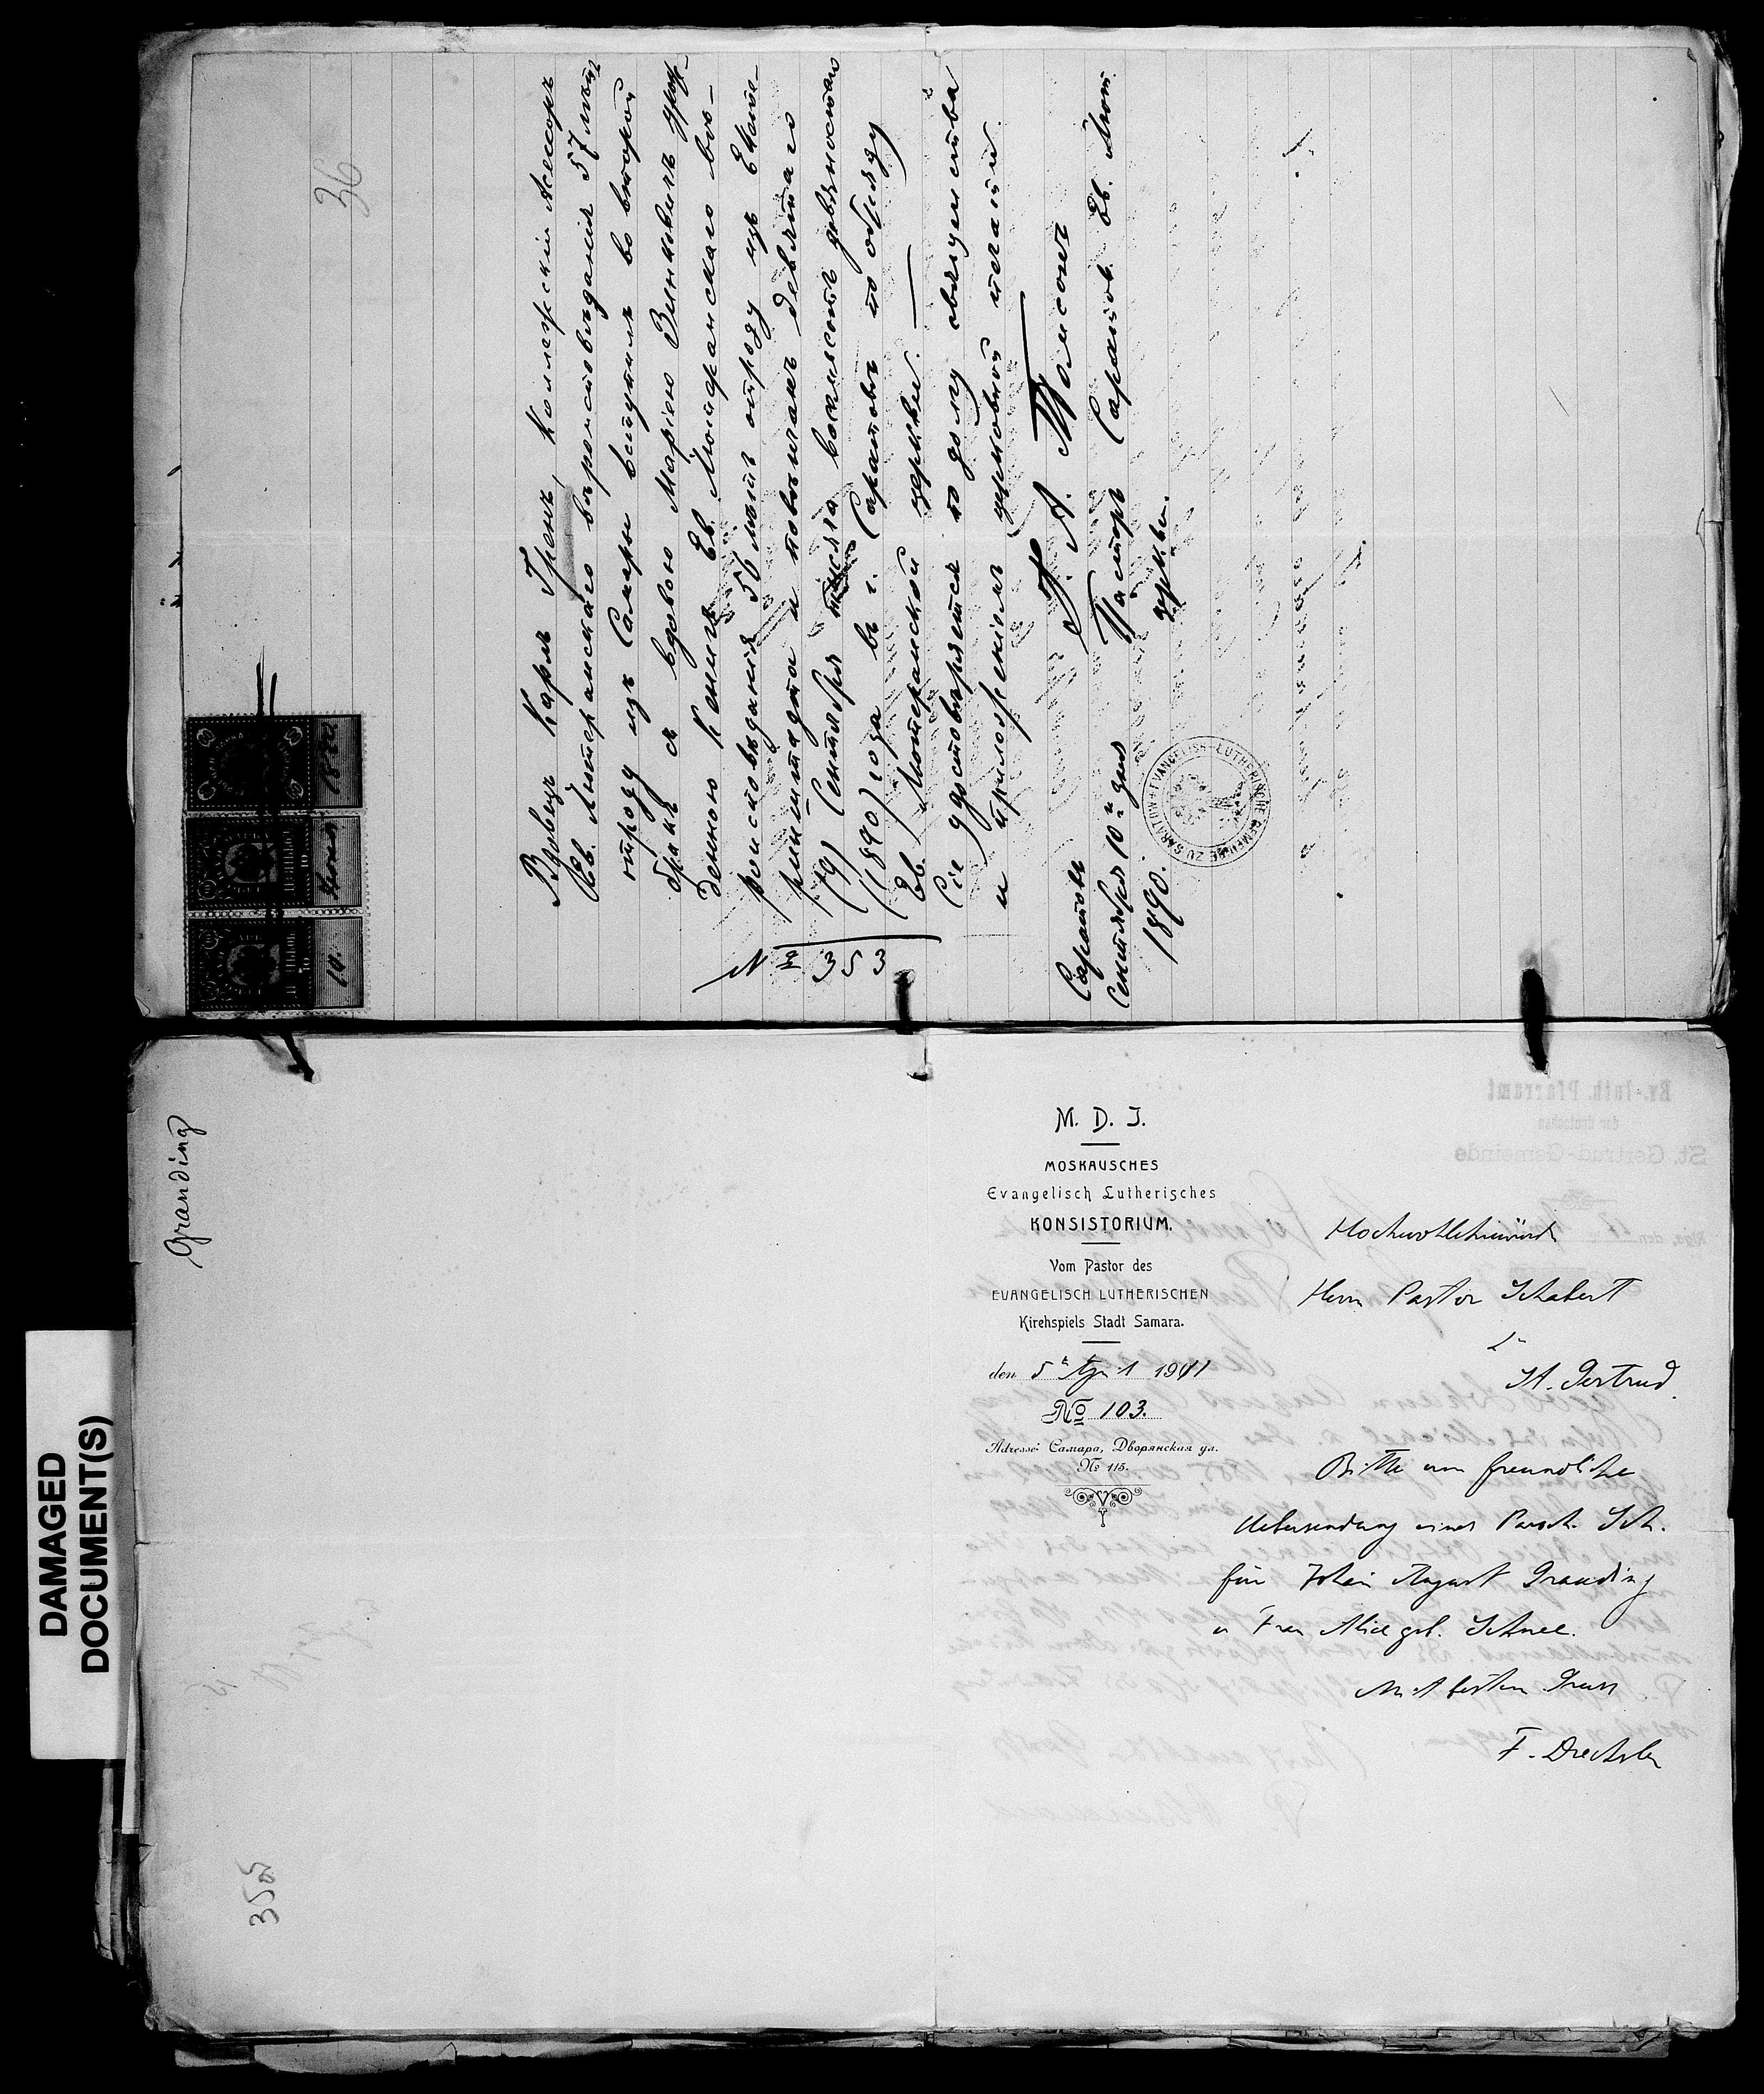 36
Вдовецъ Карлъ Гренъ, Коллежскiй Асессоръ
Ев. Лютеранскаго вѣроисповѣданiя 57 лѣтъ
отроду изъ Самары вступилъ во второй
бракъ съ вдовою Марiею Зенкевичъ урож-
денною Кенигъ Ев. Лютеранскаго вѣро-
исповѣданiя 56 лѣтъ отроду изъ Екате-
ринштадта и повѣнчанъ девятаго
(9) Сентября тысяча восемьсотъ девяностаго
(1890) года въ г. Саратовѣ по обряду
Ев. Лютеранской церкви.
Сiе удостовѣряется по долгу священства
и приложенiемъ церковной печати.
№ 353
Г. А. Томсонъ
Пасторъ Саратов. Ев. Лют.
церкви.
Саратовъ
Сентября 10го дня
1890.
EVANGELISCH-LUTHERISCHE GEMEINDE ZU SARATOW
10.
Granding
M. D. I.
MOSKAUSCHES
Evangelisch Lutherisches
KONSISTORIUM.
Vom Pastor des
EVANGELISCH LUTHERISCHEN
Kirchspiels Stadt Samara.
den 5t April 1911
No 103.
Adresse: Самара, Дворянская ул.
№ 115.
Hochwohlehrwürd
Herrn Pastor Schabert
St. Gertrud.
Bitte um freundliche
Uebersendung eines Paroch. Sch.
für Johan August Granding
u Frau Alice geb. Schnee.
Mit bestem Gruss
F. Drechsler
Ev.-luth. Pfarramt
der deutschen
St. Gertrud-Gemeinde
DAMAGED
DOCUMENT(S)